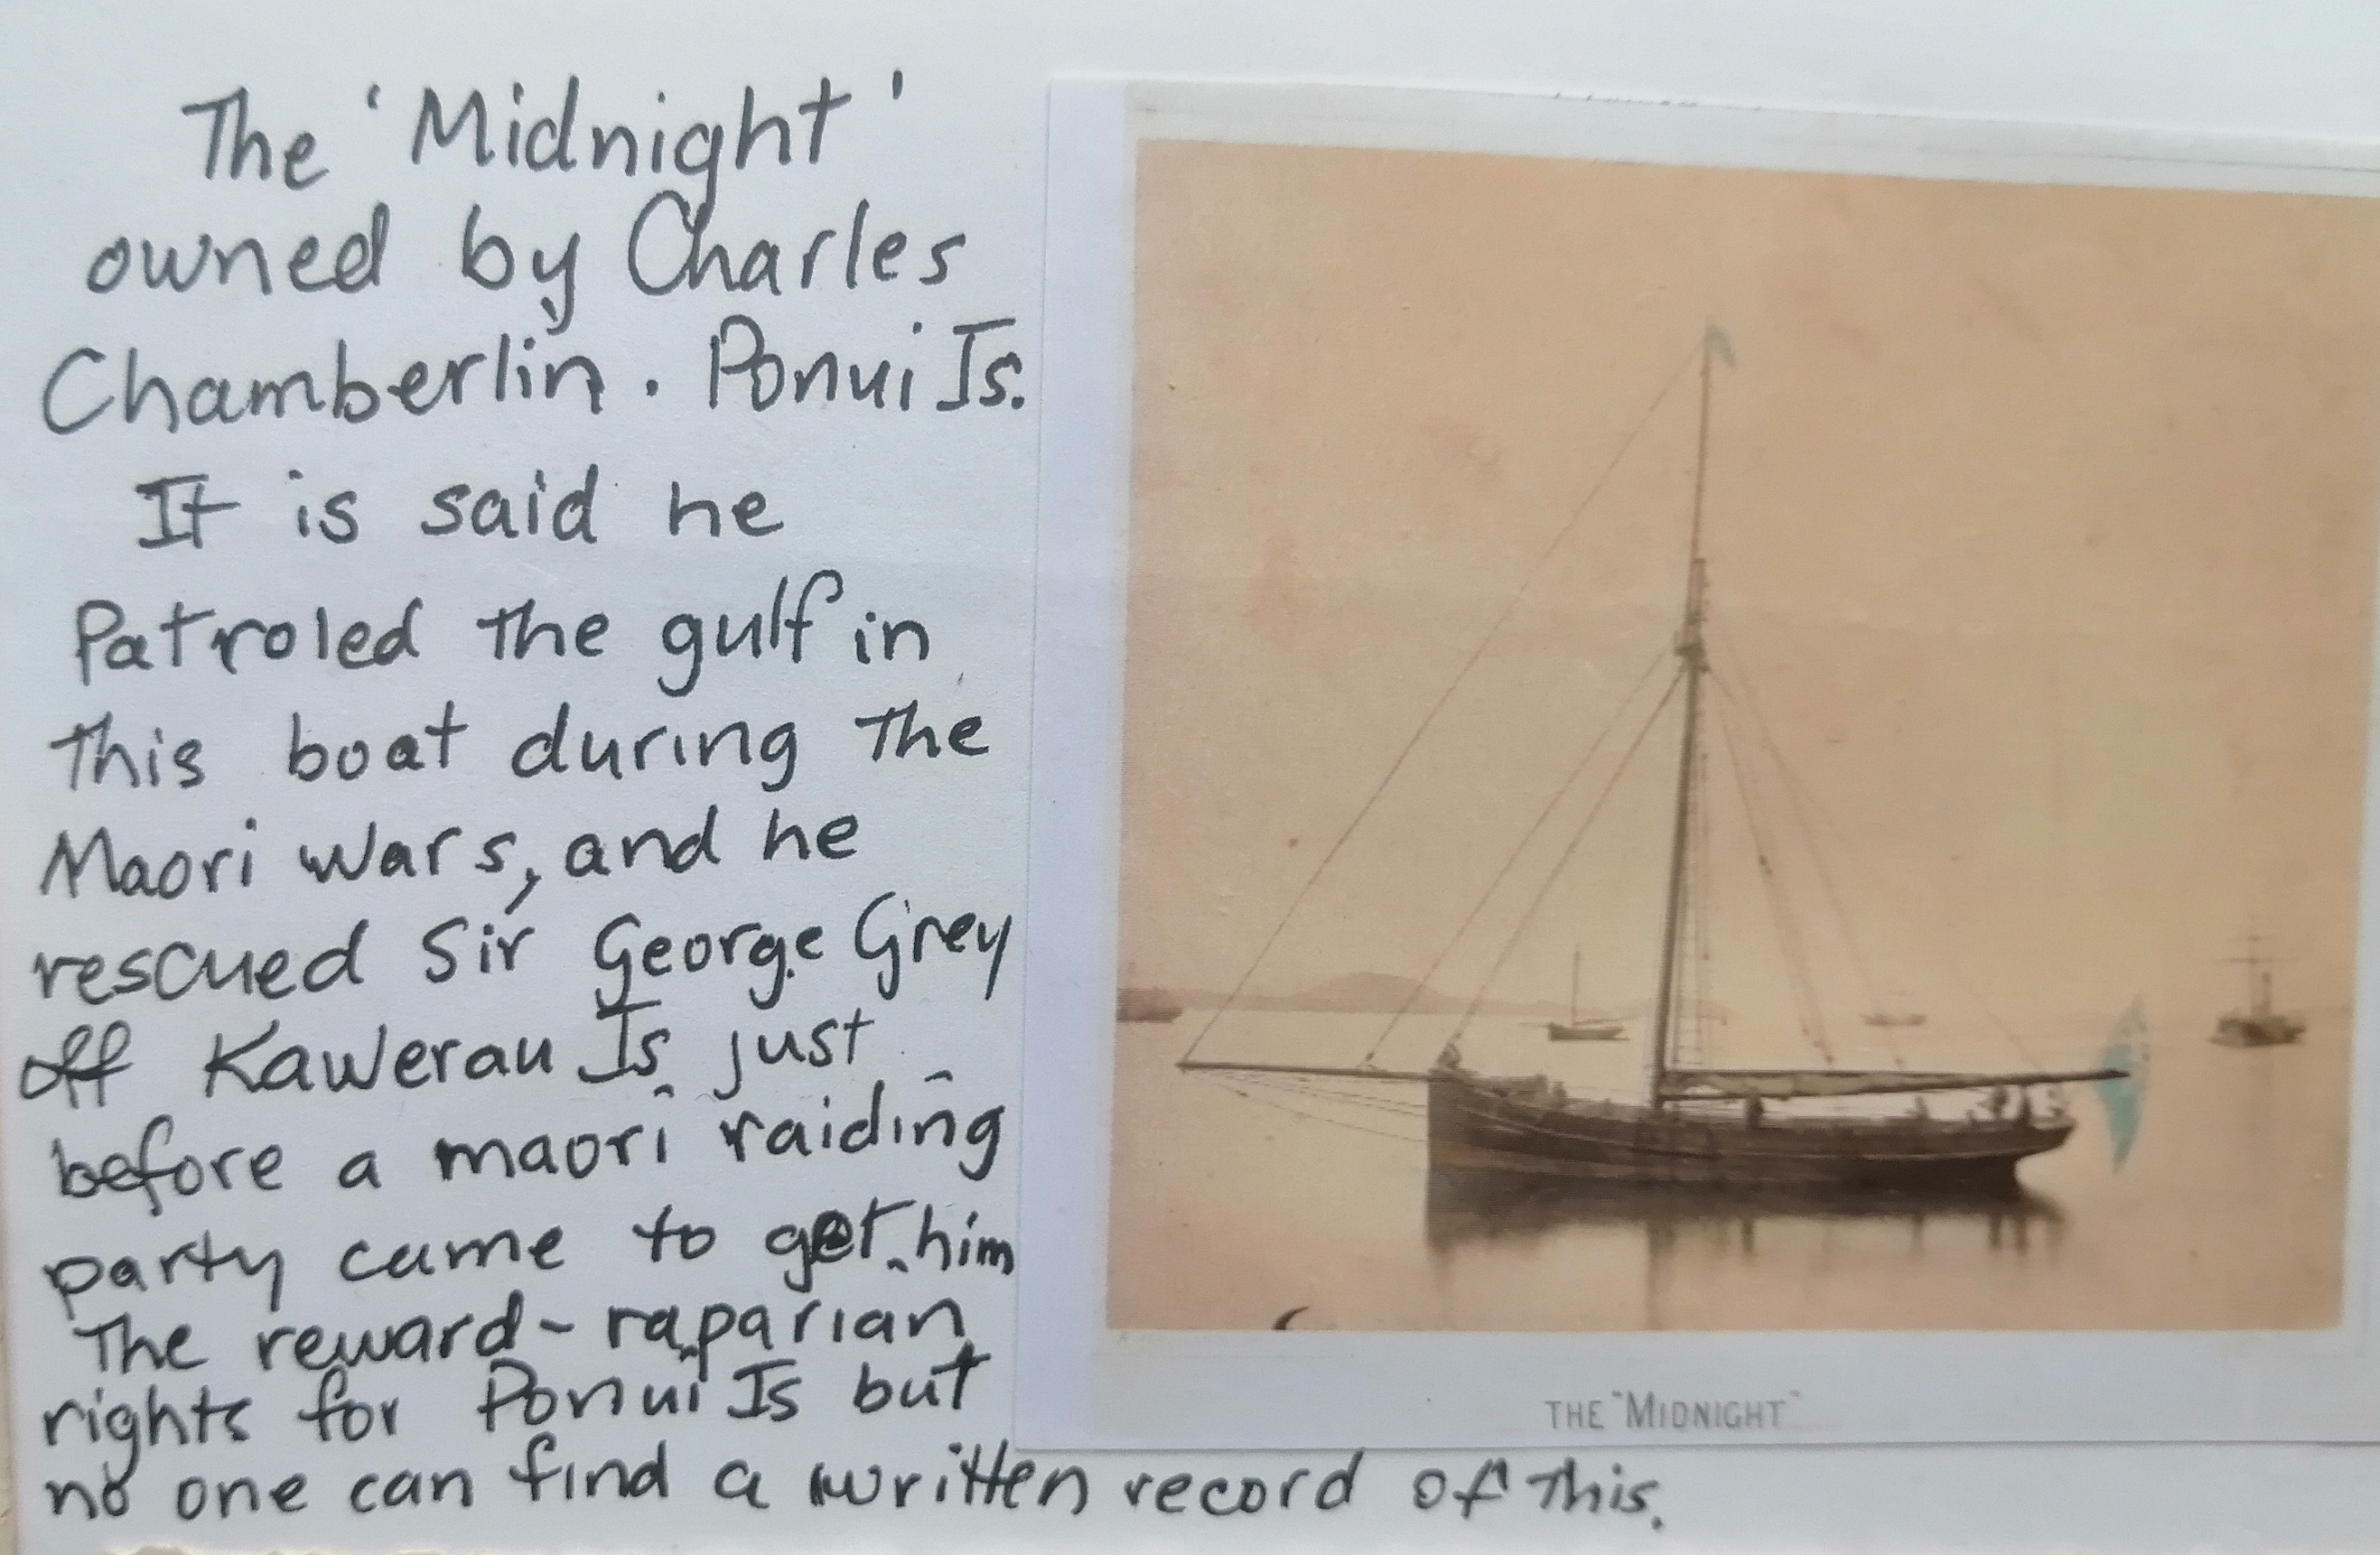 The 'Midnight'
owned by Charles
Chamberlin. Ponui Is.
It is said he
Patroled the gulf in
this boat during the
Maori Wars, and he
rescued Sir George Grey
off Kawerau Is just
before a maori raiding
party came to get him
The reward - raparian
rights for Ponui Is but
no one can find a written record of this.
THE "MIDNIGHT"